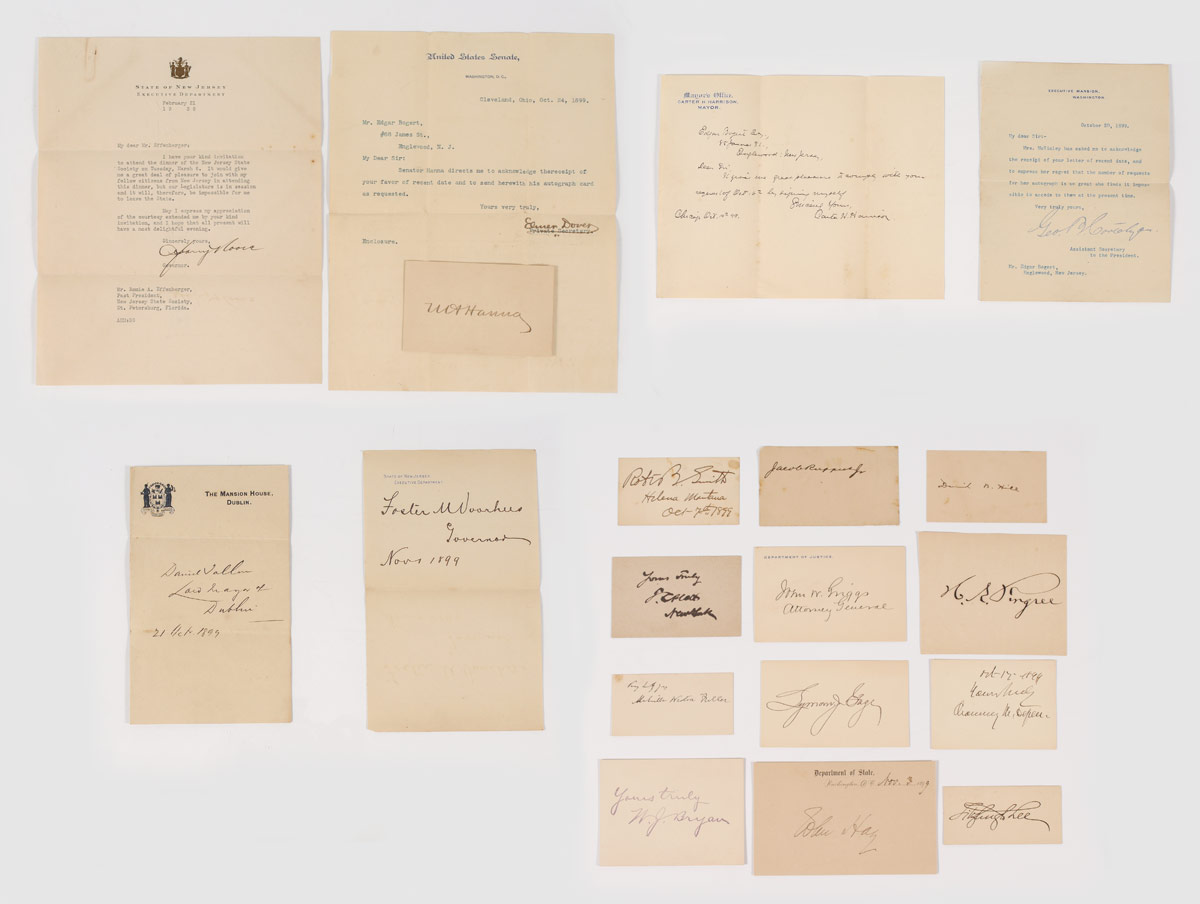 STATE OF NEW JERSEY
EXECUTIVE DEPARTMENT
February 21
My dear Mr. Effenberger:
I have your kind invitation
to attend the dinner of the New Jersey State
Society on Tuesday, March 6. It would give
me a great deal of pleasure to join with my
fellow citizens from New Jersey in attending
this dinner, but our Legislature is in session
and it will, therefore, be impossible for me
to leave the State.
May I express my appreciation
of the courtesy extended me by your kind
invitation, and I hope that all present will
have a most delightful evening.
Sincerely yours,
Harry Moore
Governor.
Mr. A. Effenberger,
Past President,
New Jersey State Society,
St. Petersburg, Florida.
United States Senate,
WASHINGTON, D.C.,
Cleveland, Ohio, Oct. 24, 1899.
Mr. Edgar Bogert,
James St.,
Englewood, N. J.
My Dear Sir:
Senator Hanna directs me to acknowledge the receipt of
your favor of recent date and to send herewith his autograph card
as requested.
Yours very truly,
Elmer Dover
Private Secretary.
Enclosure.
M A Hanna
Mayor's Office.
CARTER H. HARRISON,
MAYOR.
Edgar Bogert Esq,
Englewood, New Jersey,
Dear Sir
It gives me great pleasure to comply with your
request of Oct. by signing myself
Sincerely Yours,
Chicago Oct. Carter H. Harrison
EXECUTIVE MANSION,
WASHINGTON.
October 27, 1899.
My dear Sir:-
Mrs. McKinley has asked me to acknowledge
the receipt of your letter of recent date, and
to express her regret that the number of requests
for her autograph is so great she finds it impos-
sible to accede to them at the present time.
Very truly yours,
Geo B Cortelyou
Assistant Secretary
to the President.
Mr. Edgar Bogert,
Englewood, New Jersey.
THE MANSION HOUSE,
DUBLIN.
Daniel Tallon
Lord Mayor of
Dublin
21 Oct. 1899
STATE OF NEW JERSEY
EXECUTIVE DEPARTMENT
Foster M Voorhees
Governor
Nov 1899
Robt B Smith
Helena Montana
Oct 7th 1899
Jacob Ruppert Jr
David B. Hill
Yours truly
T. C. Platt
New York
DEPARTMENT OF JUSTICE.
John W. Griggs
Attorney General
H. S. Pingree
Melville Weston Fuller
Lyman J Gage
Oct 17 - 1899
Yours truly
Chauncey M. Depew
Yours truly
W. J. Bryan
Department of State.
Washington D C Nov. 3
John Hay
Fitzhugh Lee